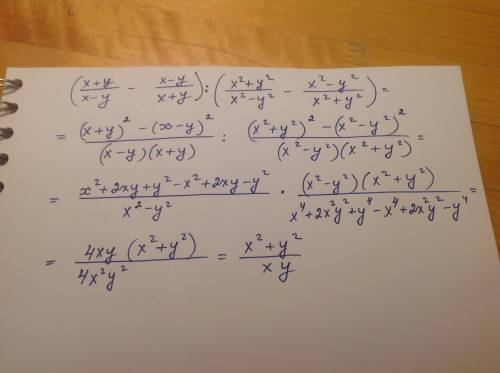 (x+y/x-y - x-y/x+y) : (x²+y²/x²-y² - x²-y²/x²+y²) =
= (x+y)²-(x-y)²/(x-y)(x+y) : (x²+y²)²-(x²-y²)²/(x²-y²)(x²+y²) =
= x²+2xy+y²-x²+2xy-y²/x²-y² · (x²-y²)(x²+y²)/x⁴+2x²y²+y⁴-x⁴+2x²y²-y⁴ =
= 4xy(x²+y²)/4x²y² = x²+y²/xy